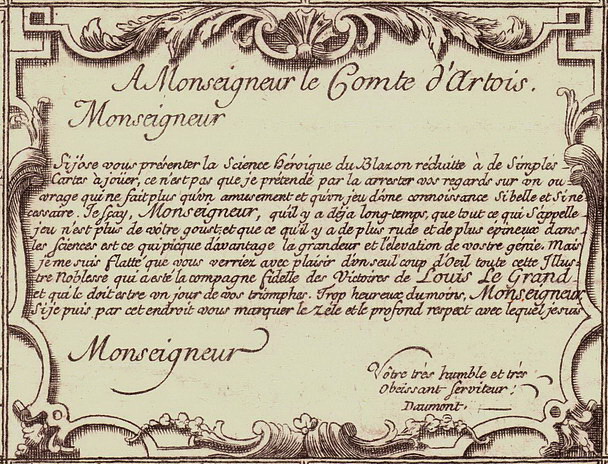 A Monseigneur le Comte d'Artois.
Monseigneur
Si j'ose vous présenter la Science héroique du Blazon réduitte à de Simples
Cartes à joüer, ce n'est pas que je prétende par la arrester vos regards sur vn ou-
vrage qui ne fait plus qu'vn amusement et qu'vn jeu d'vne connoissance Si belle et Si né
cessaire. Je sçay, Monseigneur, qu'il y a déja long-temps, que tout ce qui S'appelle
jeu n'est plus de vôtre goust; et que ce qu'il y a de plus rude et de plus épineux dans
les Sciences est ce qui picque dávantage la grandeur et l'élévation de vostre génie. Mais
je me suis flatté que vous verriez avec plaisir d'vn seul coup d'Oeil toute cette Illus-
tre Noblesse qui a esté la compagne fidelle des Victoires de Louis Le Grand
et qui le doit estre vn jour de vos triomphes. Trop heureux du moins, Monseigneur
Si je puis par cet endroit vous marquer le Zele et le profond respect avec lequel je suis
Monseigneur
Vôtre très humble et très
Obeissant Serviteur:
Daumont.